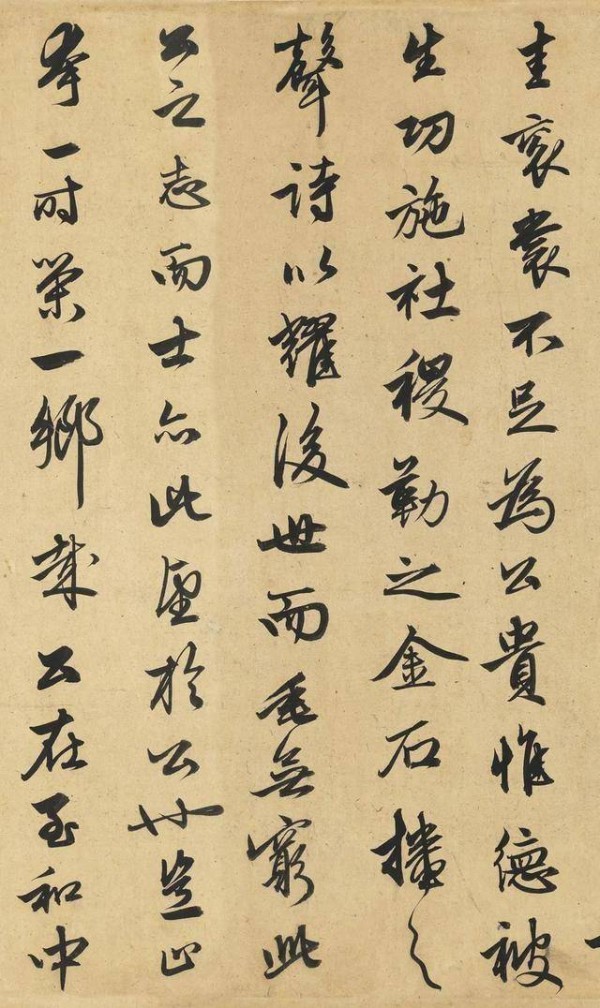 圭衮裳不足為公貴惟德被
生功施社稷勒之金石播之
聲詩以耀後世而垂無窮此
公之志而士亦此望於公也豈止
夸一时榮一鄉哉公在至和中